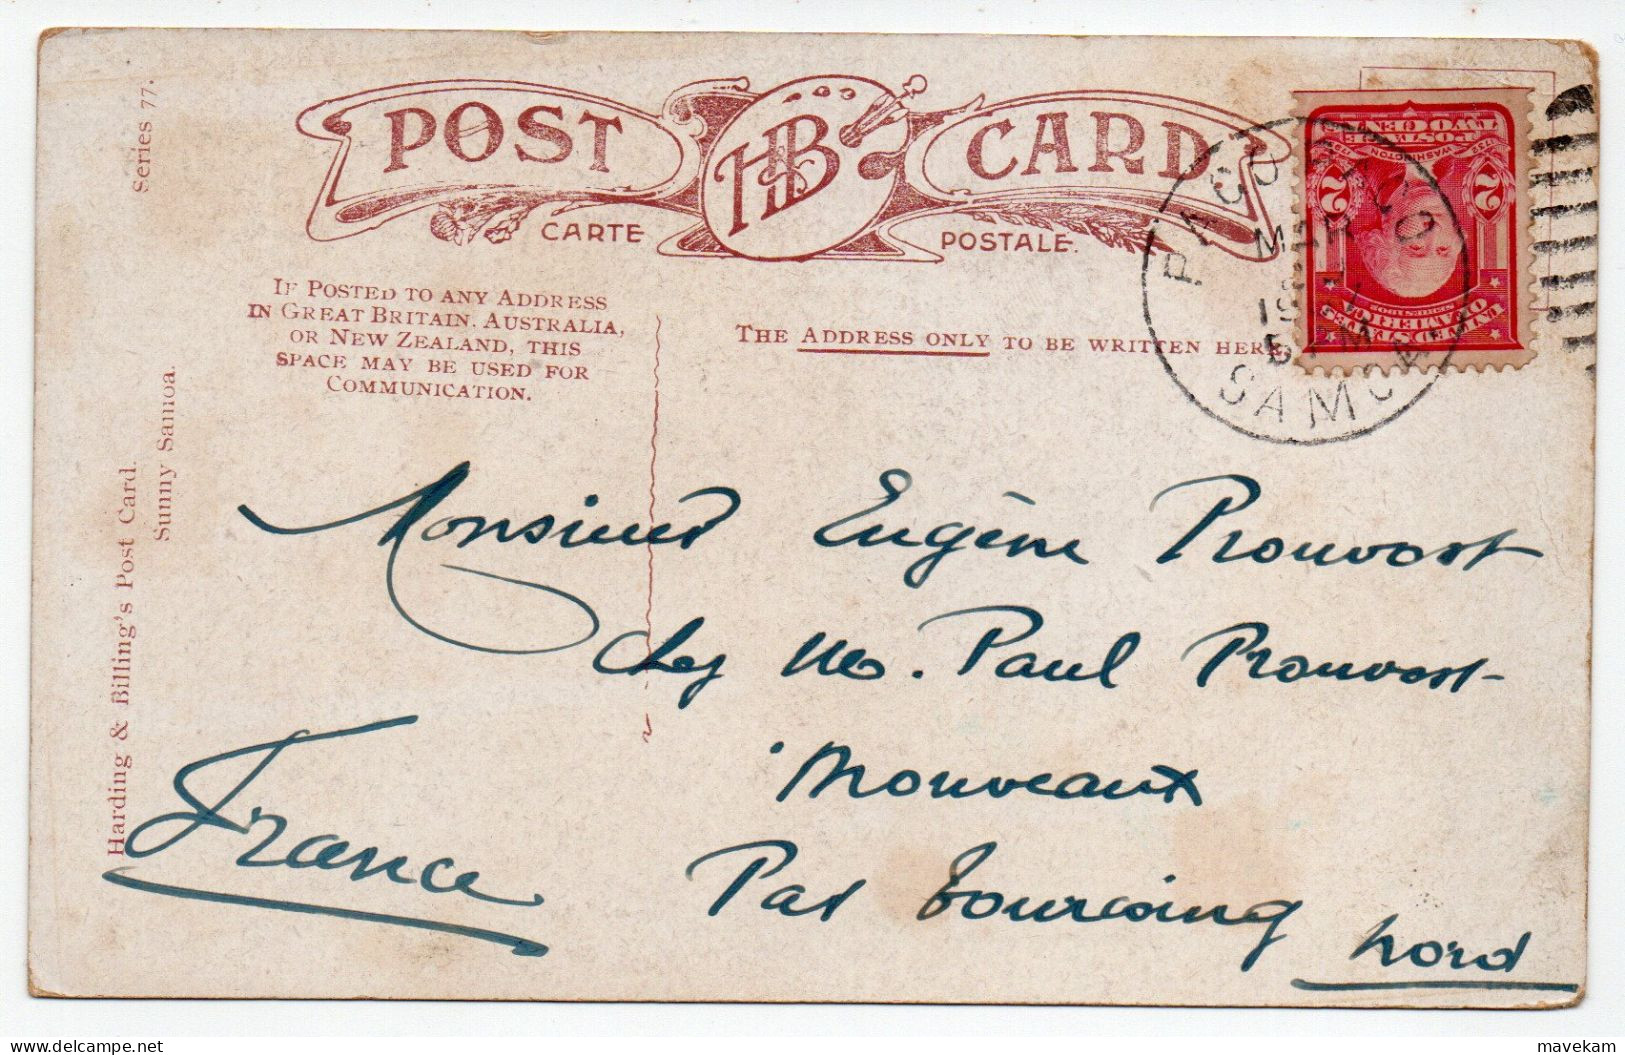 POST H&B CARD
CARTE POSTALE.
Series 77.
IF POSTED TO ANY ADDRESS
IN GREAT BRITAIN, AUSTRALIA,
OR NEW ZEALAND, THIS
SPACE MAY BE USED FOR
COMMUNICATION.
THE ADDRESS ONLY TO BE WRITTEN HERE.
PAGO PAGO
MAR
19
SAMOA
UNITED STATES
OF AMERICA
2 2
1732 WASHINGTON 1799
POSTAGE
TWO CENTS
Harding & Billing's Post Card.
Sunny Samoa.
Monsieur Eugène Prouvost
chez M. Paul Prouvost
Mouveaux
Par Tourcoing
Nord
France
mavekam